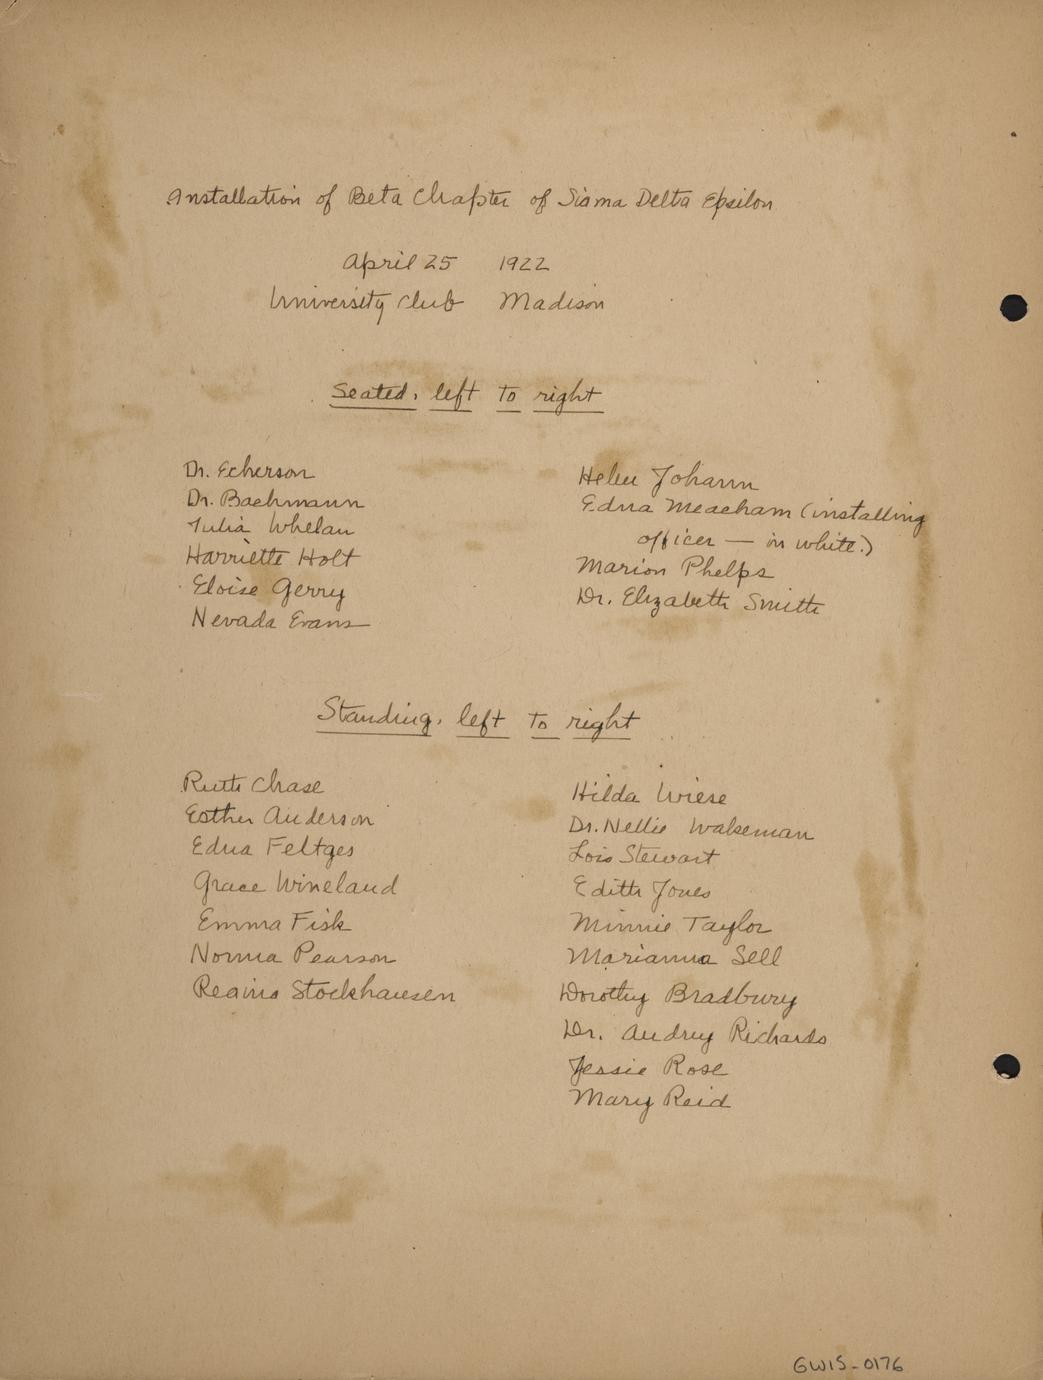 Installation of Beta Chapter of Sigma Delta Epsilon
April 25 1922
University Club Madison
Seated, left to right
Dr. Echerson
Dr. Bachmann
Julia Whelan
Harriette Holt
Eloise Gerry
Nevada Evans
Helen Johann
Edna Meacham (installing
officer — in white.)
Marion Phelps
Dr. Elizabeth Smith
Standing, left to right
Ruth Chase
Esther Anderson
Edna Feltges
Grace Wineland
Emma Fisk
Norma Pearson
Regina Stockhausen
Hilda Wiese
Dr. Nellie Wakeman
Lois Stewart
Edith Jones
Minnie Taylor
Marianna Sell
Dorothy Bradbury
Dr. Audrey Richards
Jessie Rose
Mary Reid
GWIS-0176